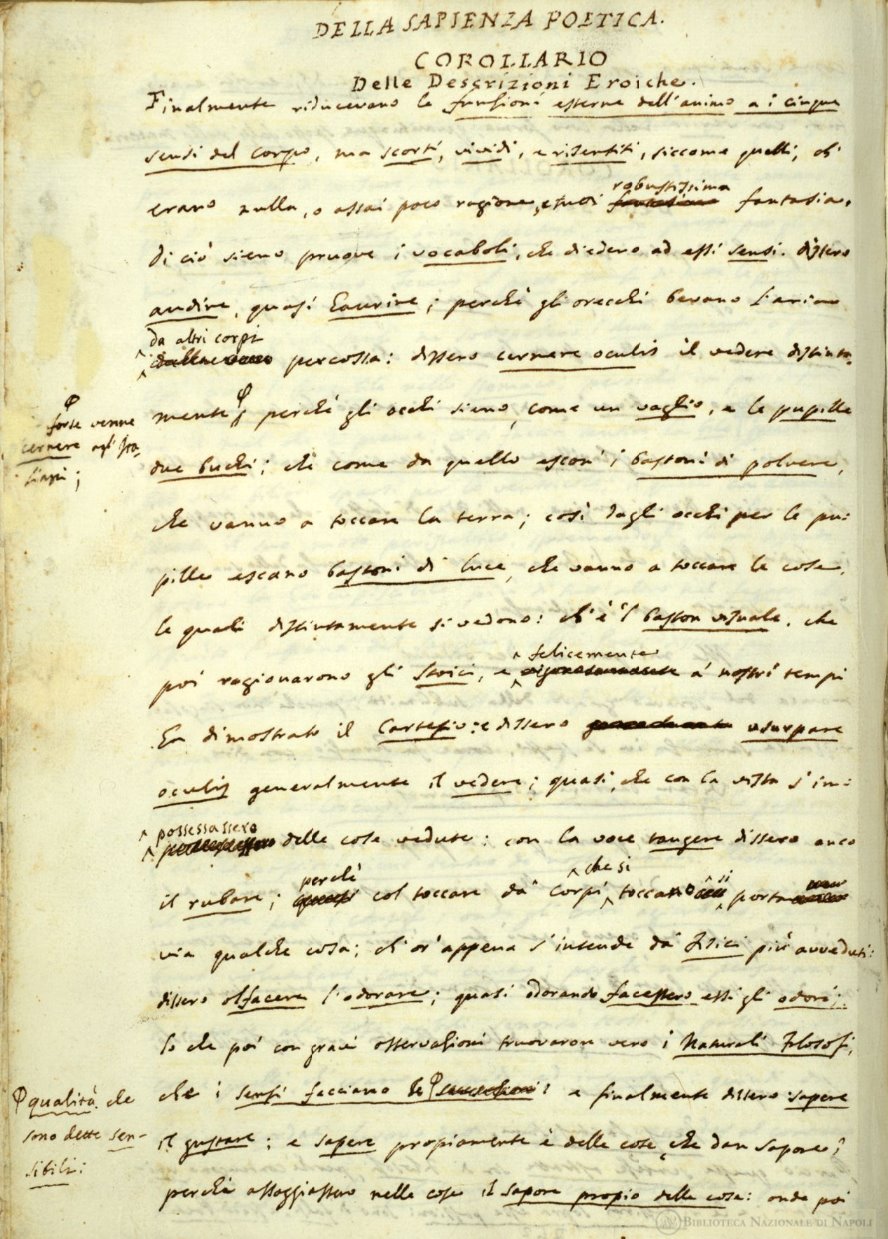 DELLA SAPIENZA POETICA.
COROLLARIO
Delle Descrizioni Eroiche.
Finalmente riducevano le funzioni esterne dell'animo a i cinque
sensi del corpo, ma scorti, vividi, e risentiti, siccome quelli, ch'
erano nulla, o assai poco ragione, e tutti robustissima fantasia.
di ciò sieno pruove i vocaboli, che diedero ad essi sensi. dissero
audire, quasi haurire; perchè gli orecchi bevano l'aria
da altri corpi
percossa: dissero cernere oculis il vedere distinta-
mente φ perchè gli occhi sieno, come un vaglio, e le pupille
φ forse venne
cernere agl'Ita-
liani;
due buchi; che come da quello escon' i bastoni di polvere,
che vanno a toccare la terra; così dagli occhi per le pu-
pille escano bastoni di luce, che vanno a toccare le cose,
le quali distintamente si vedono: ch'è 'l baston visuale, che
poi ragionarono gli Stoici, e felicemente a' nostri tempi
ha dimostrato il Cartesio: e dissero usurpare
oculis generalmente il vedere; quasi, che con la vista s'im-
possessassero delle cose vedute: con la voce tangere dissero anco
il rubare; perchè col toccare da' corpi, che si toccano si porta
via qualche cosa; ch'or'appena s'intende da' Fisici più avveduti:
dissero olfacere l'odorare; quasi odorando facessero essi gli odori;
lo che poi con gravi osservazioni truovaron vero i Naturali Filosofi,
che i sensi facciano le φ : e finalmente dissero sapere
φ qualità, che
sono dette sen-
sibili:
il gustare; e sapere propiamente è delle cose, che dan sapore;
perchè assaggiassero nelle cose il sapore propio delle cose: onde poi
BIBLIOTECA NAZIONALE DI NAPOLI